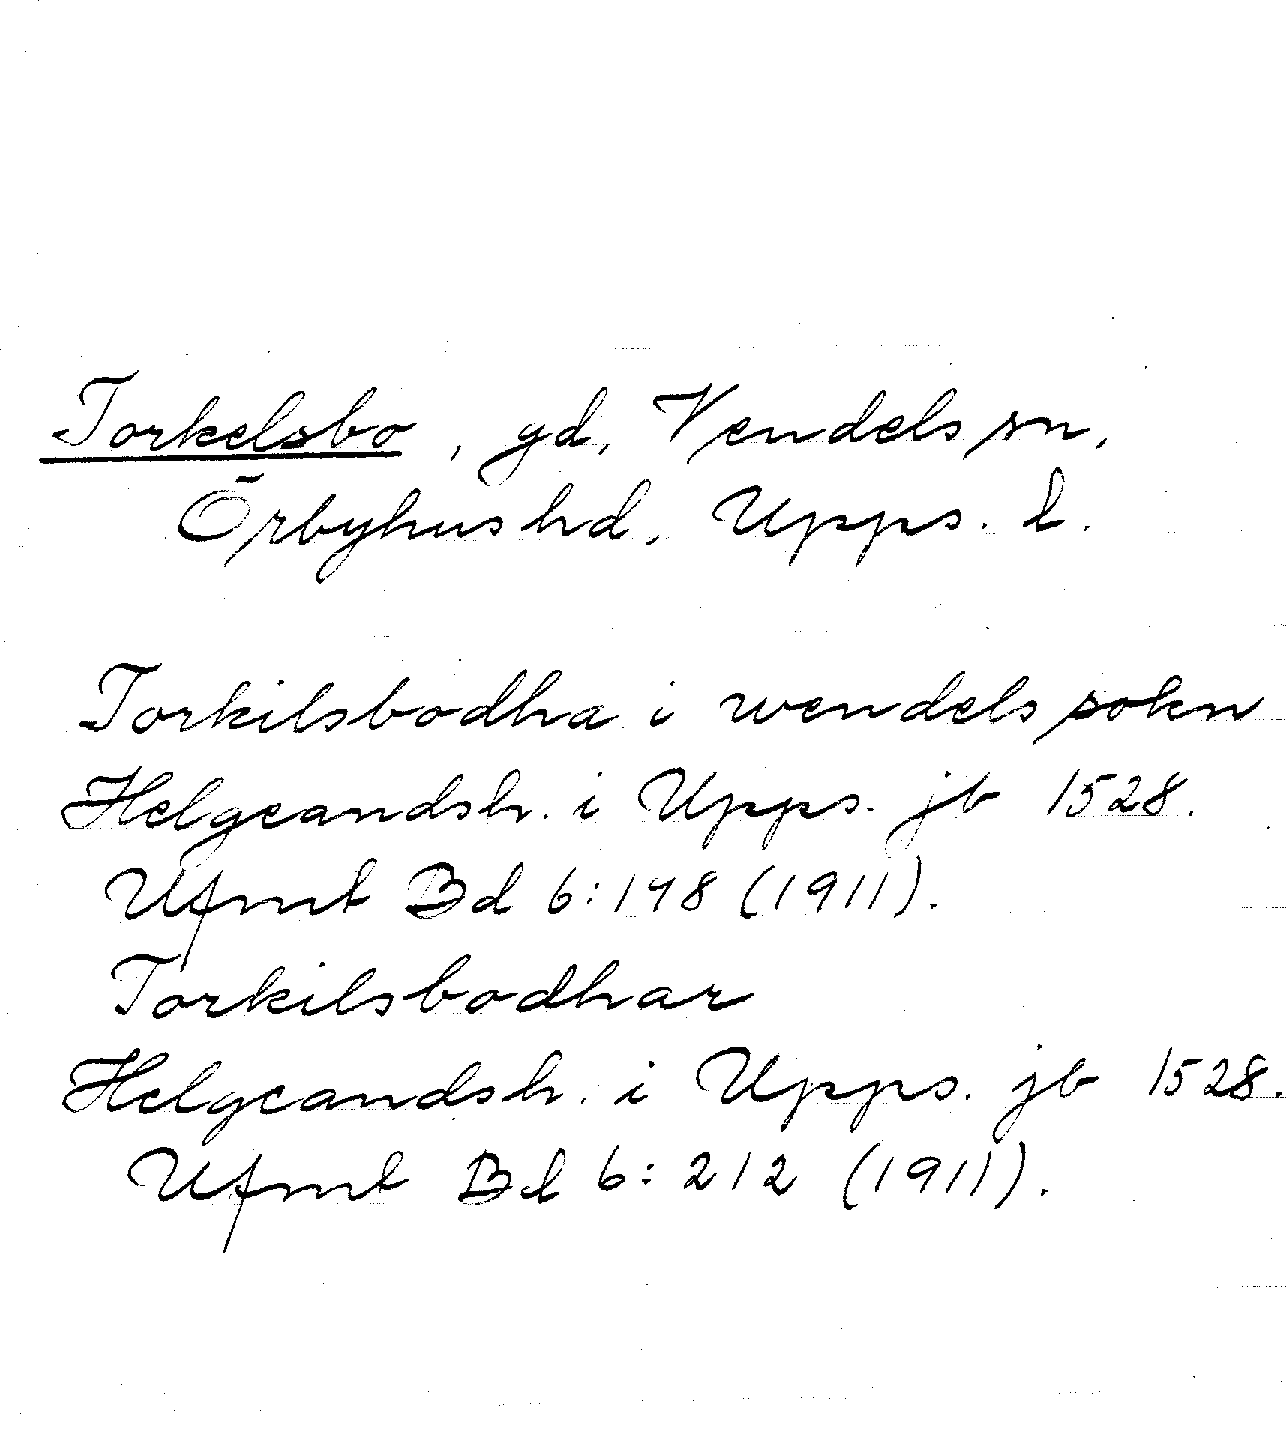 Torkelsbo, gd, Vendels sn,
Örbyhus hd, Upps. l.
Torkilsbodha i wendels sokn
Helgeandsh. i Upps. jb 1528.
Ufmt Bd 6:198 (1911).
Torkilsbodhar
Helgeandsh. i Upps. jb 1528.
Ufmt Bd 6:212 (1911).